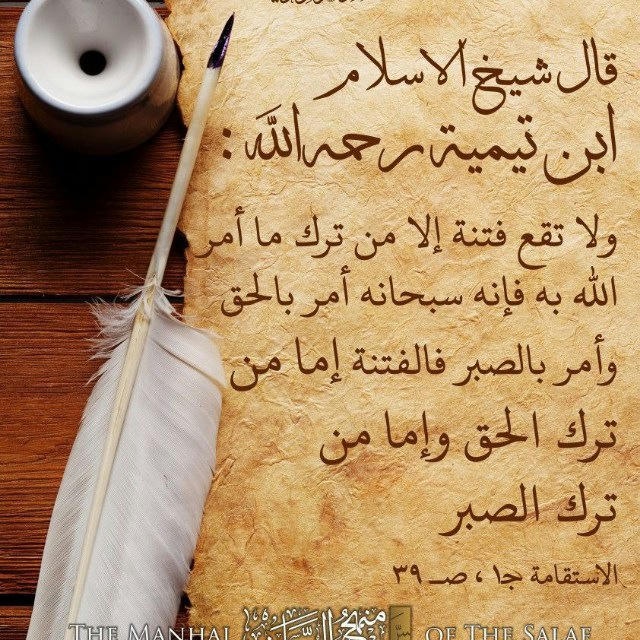 قال شيخ الاسلام
ابن تيمية رحمه الله :
ولا تقع فتنة إلا من ترك ما أمر
الله به فإنه سبحانه أمر بالحق
وأمر بالصبر فالفتنة إما من
ترك الحق وإما من
ترك الصبر
الاستقامة ج١ ، صـ ٣٩
THE MANHAJ OF THE SALAF